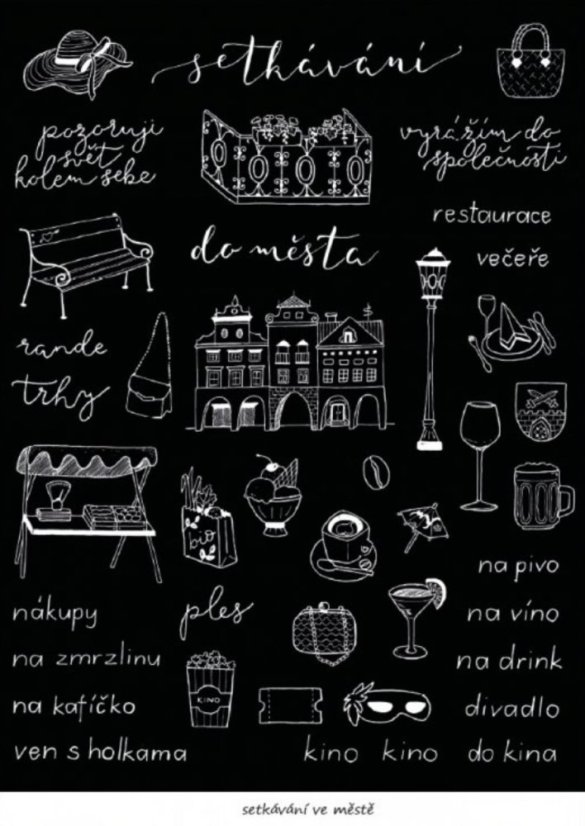 setkávání
pozoruji
svět
kolem sebe
vyrážím do
společnosti
restaurace
do města
večeře
rande
trhy
bio
na pivo
nákupy
ples
na víno
na zmrzlinu
na drink
KINO
na kafíčko
divadlo
ven s holkama
kino
kino
do kina
setkávání ve městě